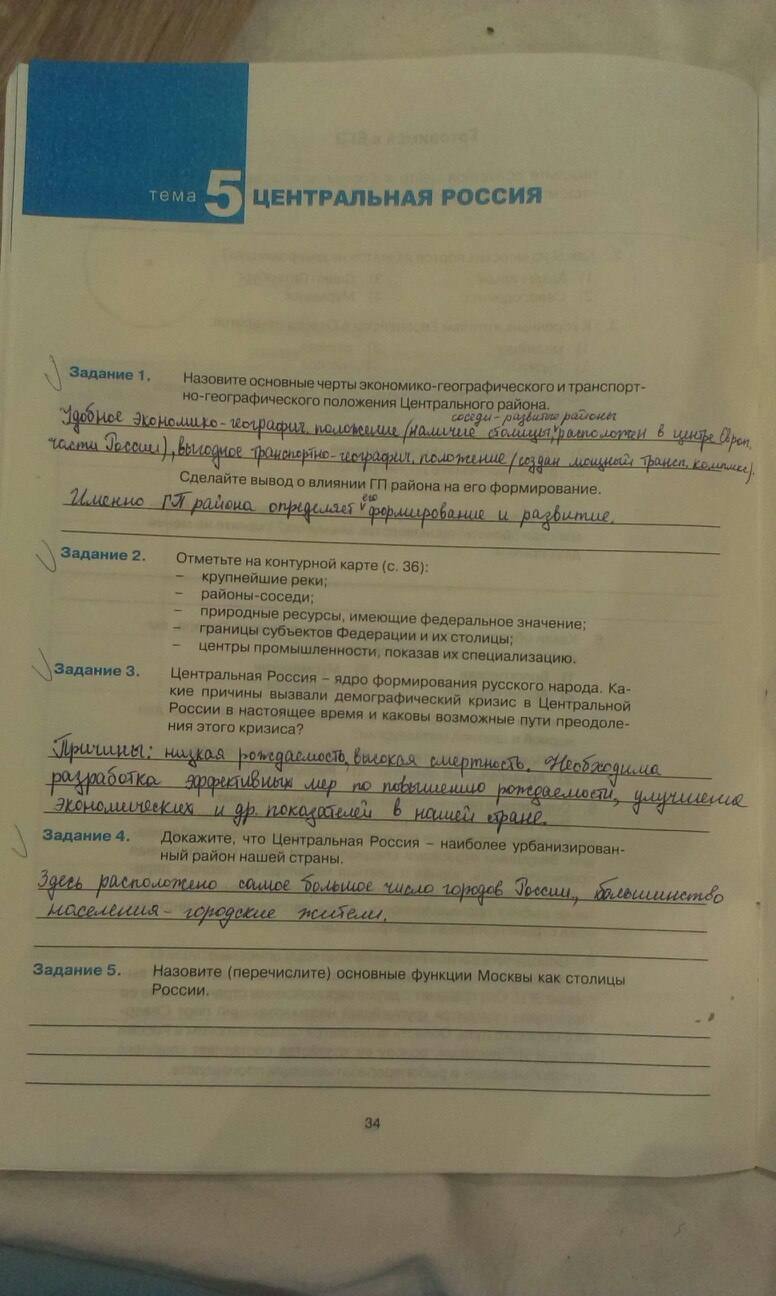 тема 5 ЦЕНТРАЛЬНАЯ РОССИЯ
Задание 1. Назовите основные черты экономико-географического и транспорт-
но-географического положения Центрального района.
соседи-развитые районы
Удобное экономико-географич. положение (наличие столицы, расположен в центре Европ.
части России), выгодное транспортно-географич. положение (создан мощный трансп. комплекс).
Сделайте вывод о влиянии ГП района на его формирование.
его
Именно ГП района определяет формирование и развитие.
Задание 2. Отметьте на контурной карте (с. 36):
– крупнейшие реки;
– районы-соседи;
– природные ресурсы, имеющие федеральное значение;
– границы субъектов Федерации и их столицы;
– центры промышленности, показав их специализацию.
Задание 3. Центральная Россия – ядро формирования русского народа. Ка-
кие причины вызвали демографический кризис в Центральной
России в настоящее время и каковы возможные пути преодоле-
ния этого кризиса?
Причины: низкая рождаемость, высокая смертность. Необходима
разработка эффективных мер по повышению рождаемости, улучшения
экономических и др. показателей в нашей стране.
Задание 4. Докажите, что Центральная Россия – наиболее урбанизирован-
ный район нашей страны.
Здесь расположено самое большое число городов России, большинство
населения – городские жители.
Задание 5. Назовите (перечислите) основные функции Москвы как столицы
России.
34